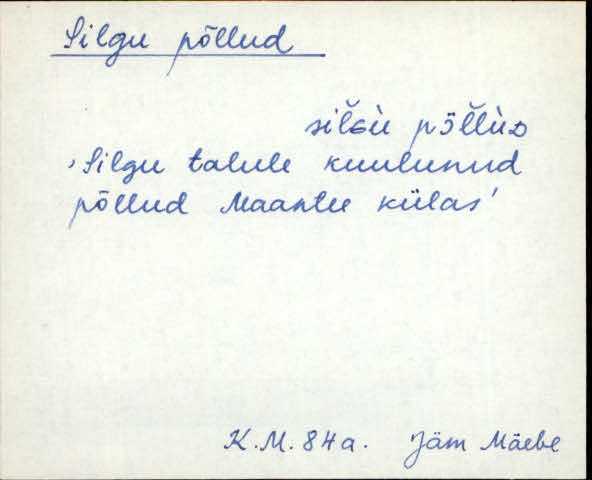 Silgu põllud
sil̆Gù pɜ̆l̆lùD
‚Silgu talule kuulunud
põllud Maantee külas’
K.M. 84a. Jäm Mäebe